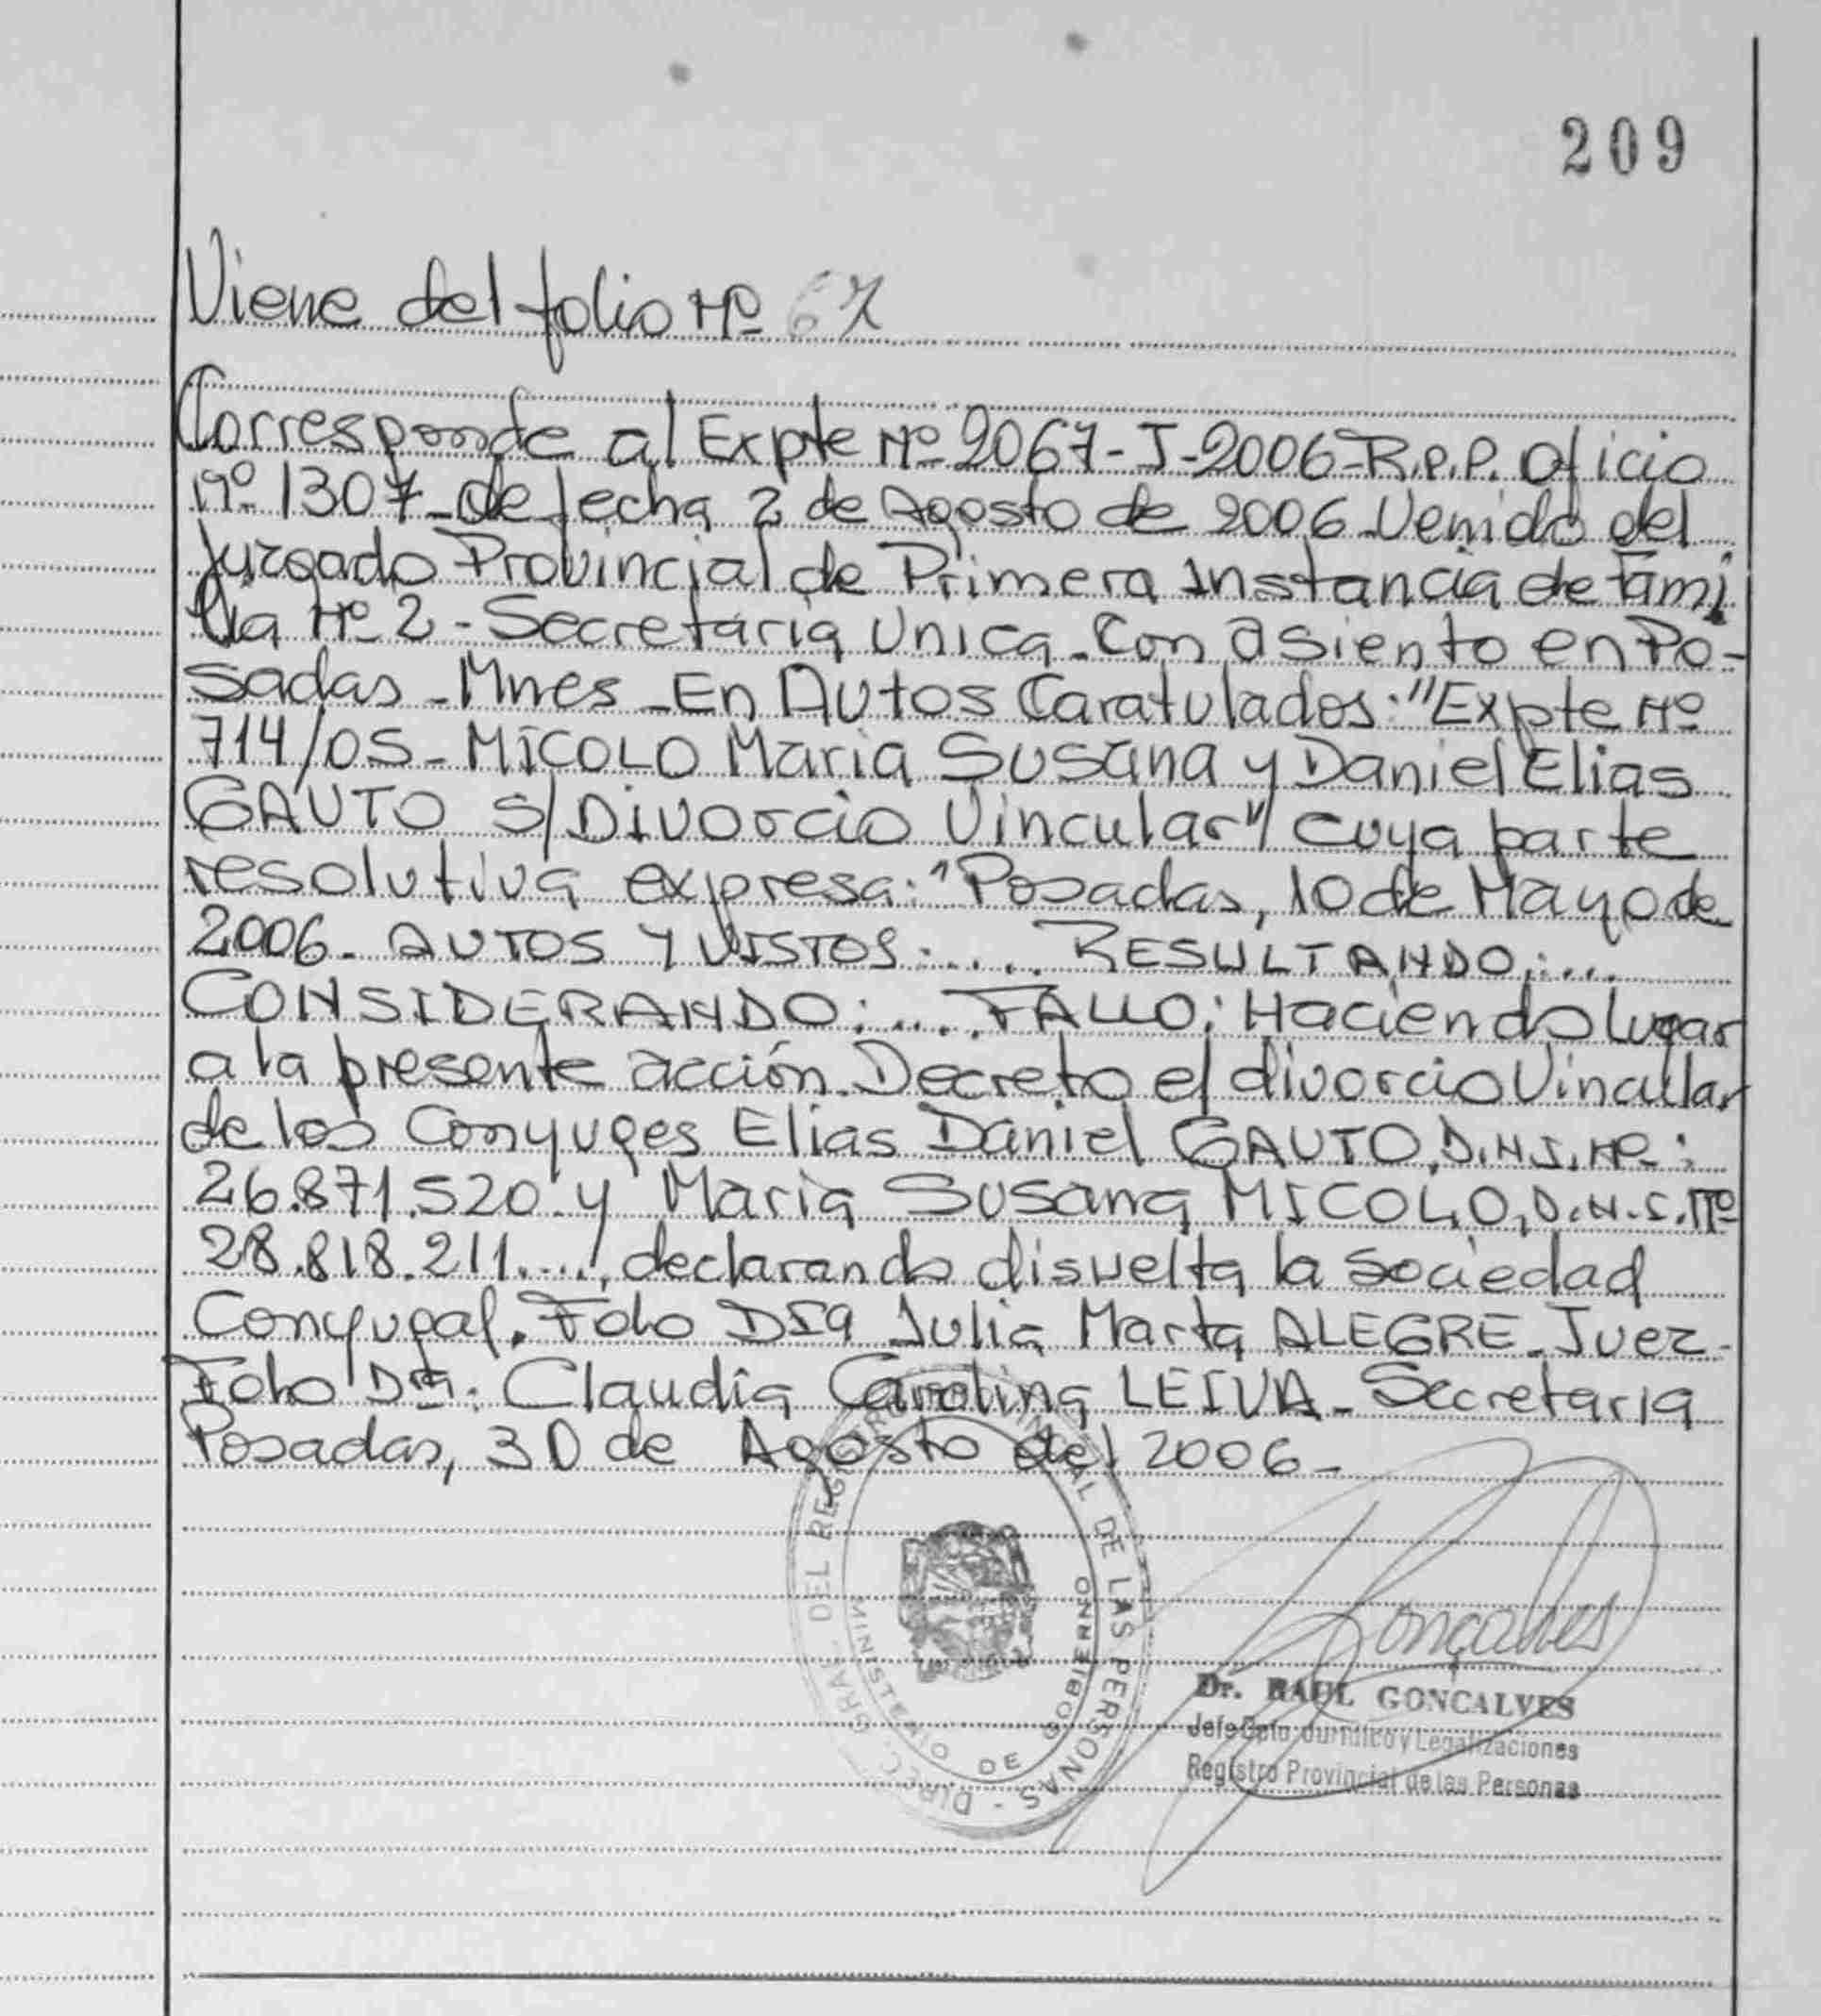 209
Viene del folio Nº 67
Corresponde al Expte Nº 2067-J-2006-R.P.P. Oficio
Nº 1307-de fecha 2 de Agosto de 2006-Venido del
Juzgado Provincial de Primera Instancia de Fami
lia Nº 2-Secretaria Unica-Con asiento en Po-
sadas-Mnes-En Autos Caratulados: "Expte Nº
714/05-MICOLO Maria Susana y Daniel Elias
GAUTO s/Divorcio Vincular" cuya parte
resolutiva expresa: "Posadas, 10 de Mayo de
2006. AUTOS Y VISTOS:.... RESULTANDO:...
CONSIDERANDO:.... FALLO: Haciendo lugar
a la presente acción. Decreto el divorcio Vincular
de los Conyuges Elias Daniel GAUTO, D.N.I. Nº:
26.871.520 y Maria Susana MICOLO, D.N.I. Nº
28.818.211...., declarando disuelta la Sociedad
Conyugal. Fdo Dra Julia Marta ALEGRE-Juez-
Fdo Dra: Claudia Carolina LEIVA-Secretaria
Posadas, 30 de Agosto del 2006-
DIREC. GRAL. DEL REGISTRO PROVINCIAL DE LAS PERSONAS -
MINISTERIO DE GOBIERNO
Gonçalves
Dr. RAUL GONÇALVES
Jefe Dpto. Jurídico y Legalizaciones
Registro Provincial de las Personas